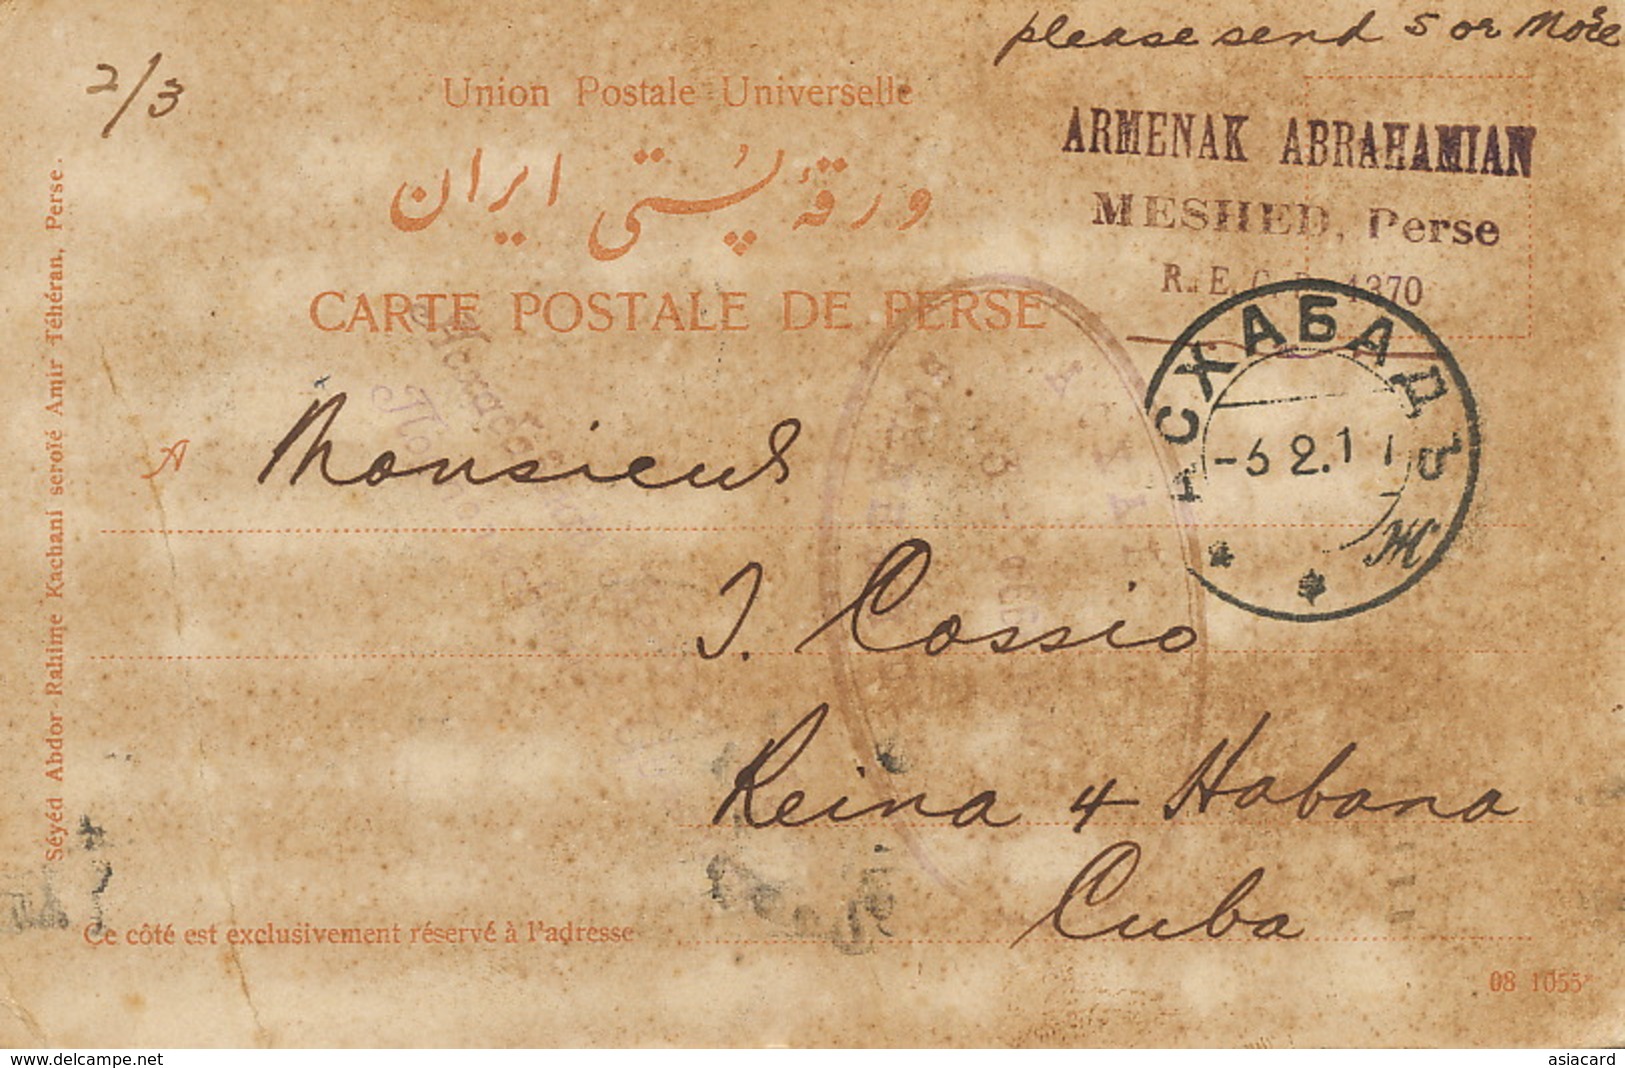 please send 5 or More
2/3
Union Postale Universelle
ورقهٔ پُستی ایران
CARTE POSTALE DE PERSE
ARMENAK ABRAHAMIAN
MESHED, Perse
1370
АСХАБАДЪ
Ж
A Monsieur
J. Cossio
Reina 4 Habana
Cuba
Ce côté est exclusivement réservé à l'adresse
08 1055
Séyéd Abdor-Rahime Kachani seroïé Amir Téhéran, Perse.
www.delcampe.net
asiacard